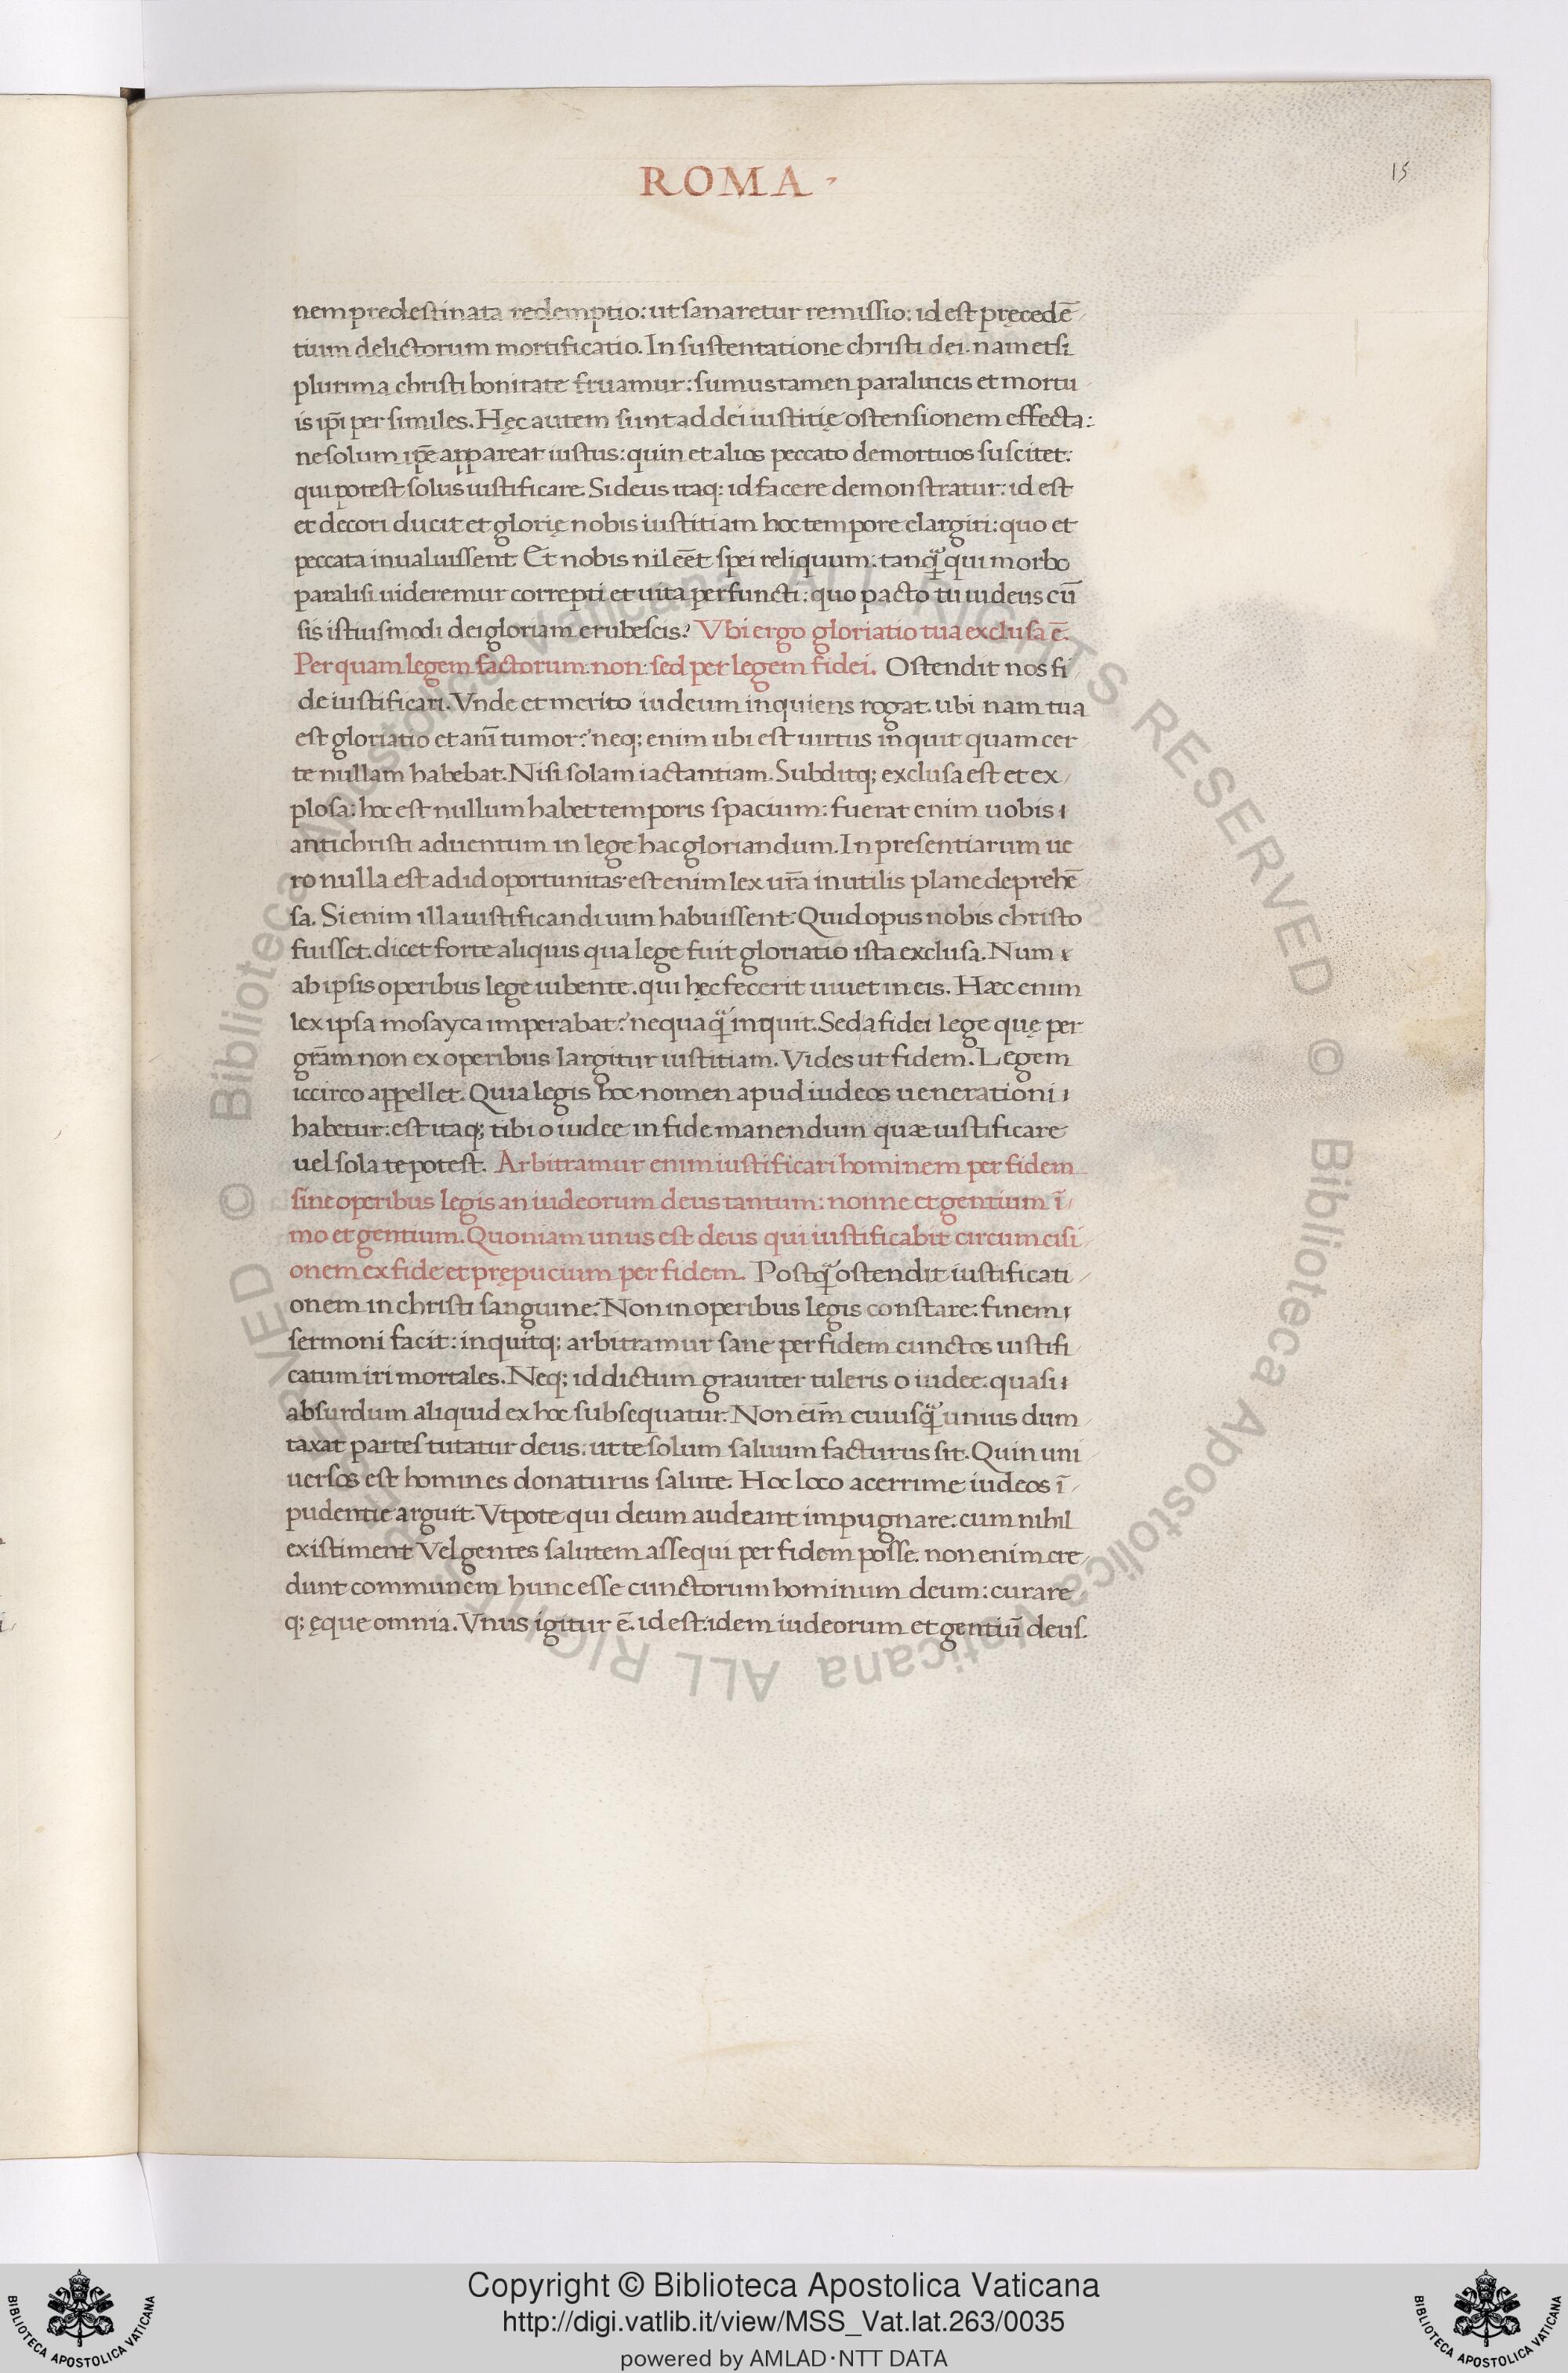 ROMA
15
nem predestinata redemptio: ut sanaretur remissio: id est pręcedē
tium delictorum mortificatio. In sustentatione christi dei. nam etsi
plurima christi bonitate fruamur: sumus tamen paraliticis et mortu
is ip̄i persimiles. Hęc autem sunt ad dei iustitię ostensionem effecta:
ne solum ip̄e appareat iustus: quin et alios peccato demortuos suscitet:
qui potest solus iustificare. Si deus itaq: id facere demonstratur: id est
et decori ducit et glorię nobis iustitiam hoc tempore elargiri: quo et
peccata inualuissent. Et nobis nil eēt spei reliquum: tanq̄ qui morbo
paralisi uideremur correpti et uita perfuncti: quo pacto tu iudeus cū
sis istiusmodi dei gloriam erubescis? Vbi ergo gloriatio tua exclusa ē.
Per quam legem factorum: non: sed per legem fidei. Ostendit nos fi
de iustificari. Vnde et merito iudeum inquiens rogat. ubi nam tua
est gloriatio et anī tumor? neq; enim ubi est uirtus inquit quam cer
te nullam habebat. Nisi solam iactantiam. Subditq; exclusa est et ex
plosa: hoc est nullum habet temporis spacium: fuerat enim uobis
antichristi aduentum in lege hac gloriandum. In presentiarum ue
ro nulla est ad id oportunitas. est enim lex ur̄a inutilis plane deprehē
sa. Si enim illa iustificandi uim habuissent: Quid opus nobis christo
fuisset. dicet forte aliquis qua lege fuit gloriatio ista exclusa. Num
ab ipsis operibus lege iubente. qui hęc fecerit uiuet in eis. Hæc enim
lex ipsa mosayca imperabat? nequaq̄ inquit. Sed a fidei lege quę per
gr̄am non ex operibus largitur iustitiam. Vides ut fidem. Legem
iccirco appellet. Quia legis hoc nomen apud iudeos uenerationi
habetur: est itaq; tibi o iudee in fide manendum quæ iustificare
uel sola te potest. Arbitramur enim iustificari hominem per fidem
sine operibus legis an iudeorum deus tantum: nonne et gentium ī
mo et gentium. Quoniam unus est deus qui iustificabit circumcisi
onem ex fide et prępucium per fidem. Postq̄ ostendit iustificati
onem in christi sanguine: Non in operibus legis constare: finem
sermoni facit: inquitq; arbitramur sane per fidem cunctos iustifi
catum iri mortales. Neq; id dictum grauiter tuleris o iudee: quasi
absurdum aliquid ex hoc subsequatur. Non eim̄ cuiusq̄ unius dum
taxat partes tutatur deus: ut te solum saluum facturus sit. Quin uni
uersos est homines donaturus salute. Hoc loco acerrime iudeos ī
pudentie arguit. Vtpote qui deum audeant impugnare: cum nihil
existiment Vel gentes salutem assequi per fidem posse. non enim cre
dunt communem hunc esse cunctorum hominum deum: curare
q; ęque omnia. Vnus igitur ē. id est. idem iudeorum et gentiū deus.
© Biblioteca Apostolica Vaticana ALL RIGHTS RESERVED © Biblioteca Apostolica Vaticana ALL RIGHTS RESERVED
Copyright © Biblioteca Apostolica Vaticana
http://digi.vatlib.it/view/MSS_Vat.lat.263/0035
powered by AMLAD·NTT DATA
BIBLIOTECA APOSTOLICA VATICANA
BIBLIOTECA APOSTOLICA VATICANA